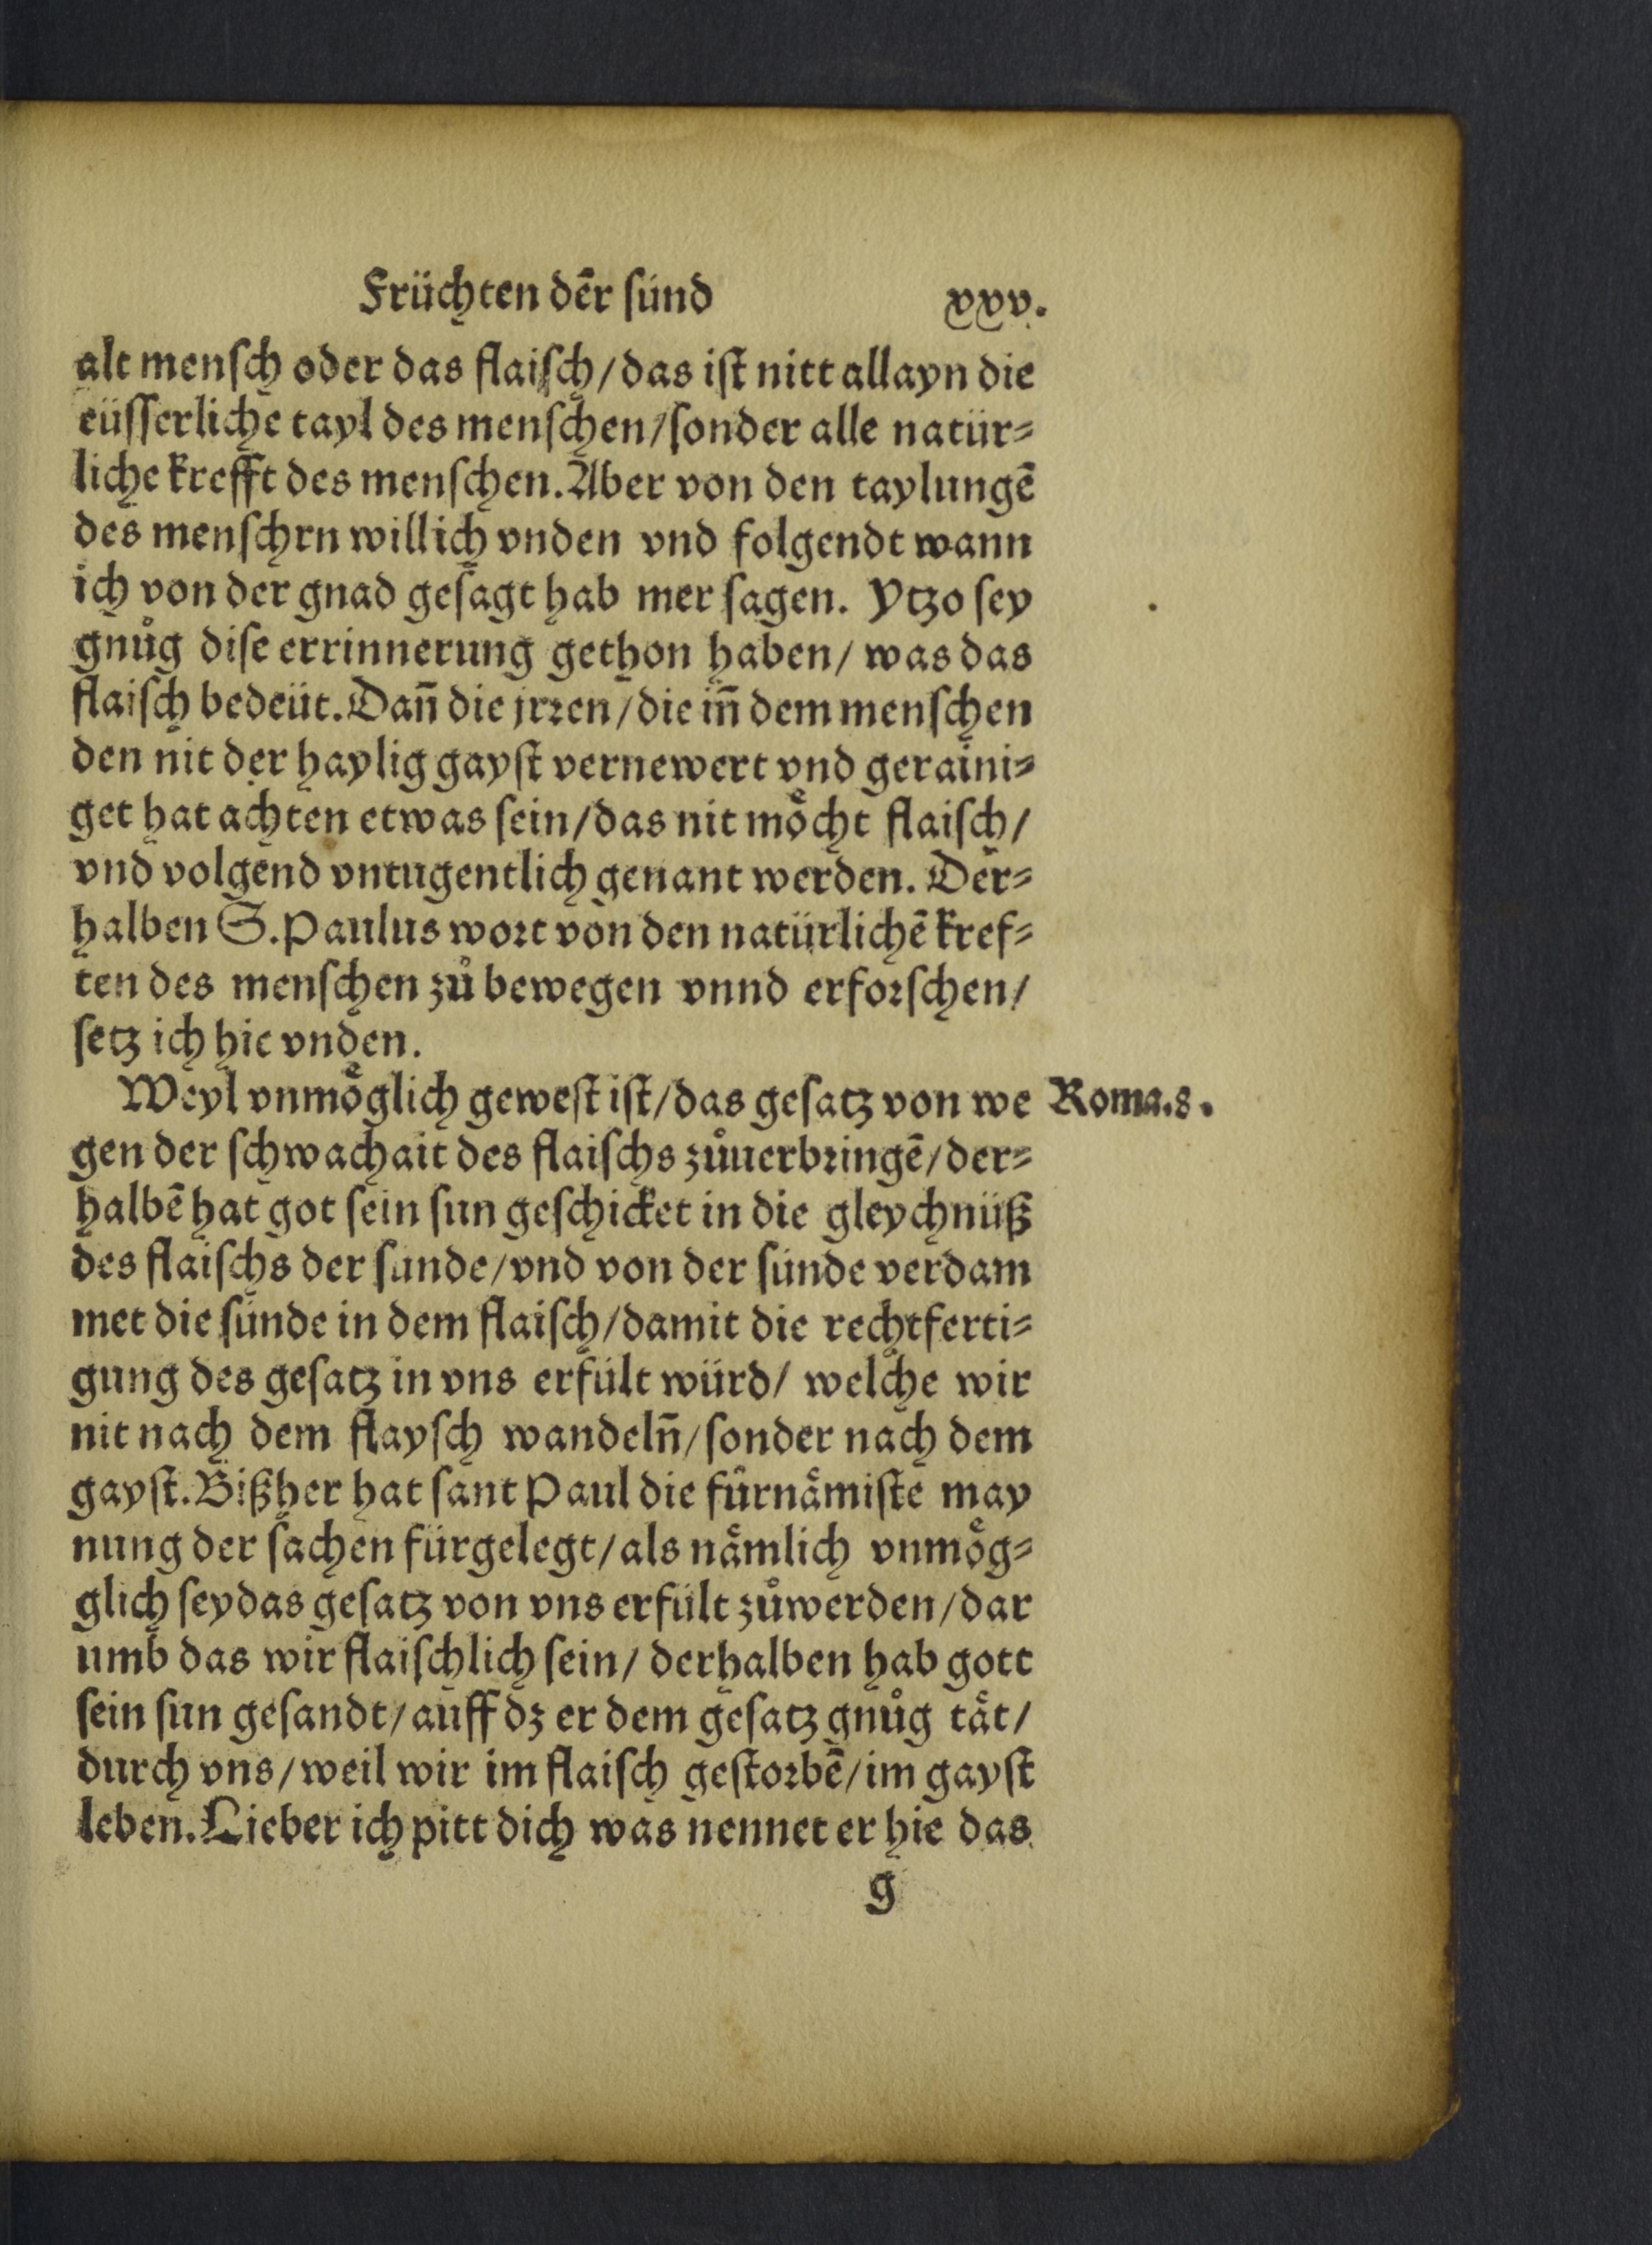 Früchten dēr ſünd xxxv.
alt menſch oder das flaiſch/das iſt nitt allayn die
eüſſerliche tayl des menſchen/ſonder alle natür⸗
liche krefft des menſchen. Aber von den taylungē
des menſchrn willich vnden vnd folgendt wann
ich von der gnad geſagt hab mer ſagen. Ytzo ſey
gnůg diſe errinnerung gethon haben/ was das
flaiſch bedeüt. Dañ die jrꝛen/die iñ dem menſchen
den nit der haylig gayſt vernewert vnd geraini⸗
get hat achten etwas ſein/das nit moͤcht flaiſch/
vnd volgend vntugentlich genant werden. Der⸗
halben S. Paulus woꝛt von den natürlichē kref⸗
ten des menſchen zů bewegen vnnd erfoꝛſchen/
ſetz ich hie vnden.
Weyl vnmoͤglich geweſt iſt/das geſatz von we Roma.8.
gen der ſchwachait des flaiſchs zůuerbꝛingē/der⸗
halbē hat got ſein ſun geſchicket in die gleychnüß
des flaiſchs der ſunde/vnd von der ſünde verdam
met die ſünde in dem flaiſch/damit die rechtferti⸗
gung des geſatz in vns erfült würd/ welche wir
nit nach dem flayſch wandelñ/ſonder nach dem
gayſt. Bißher hat ſant Paul die fürnaͤmiſte may
nung der ſachen fürgelegt/als naͤmlich vnmoͤg⸗
glich ſey das geſatz von vns erfült zůwerden/dar
umb das wir flaiſchlich ſein/ derhalben hab gott
ſein ſun geſandt/auff dz er dem geſatz gnůg taͤt/
durch vns/weil wir im flaiſch geſtoꝛbē/im gayſt
leben. Lieber ich pitt dich was nennet er hie das
g